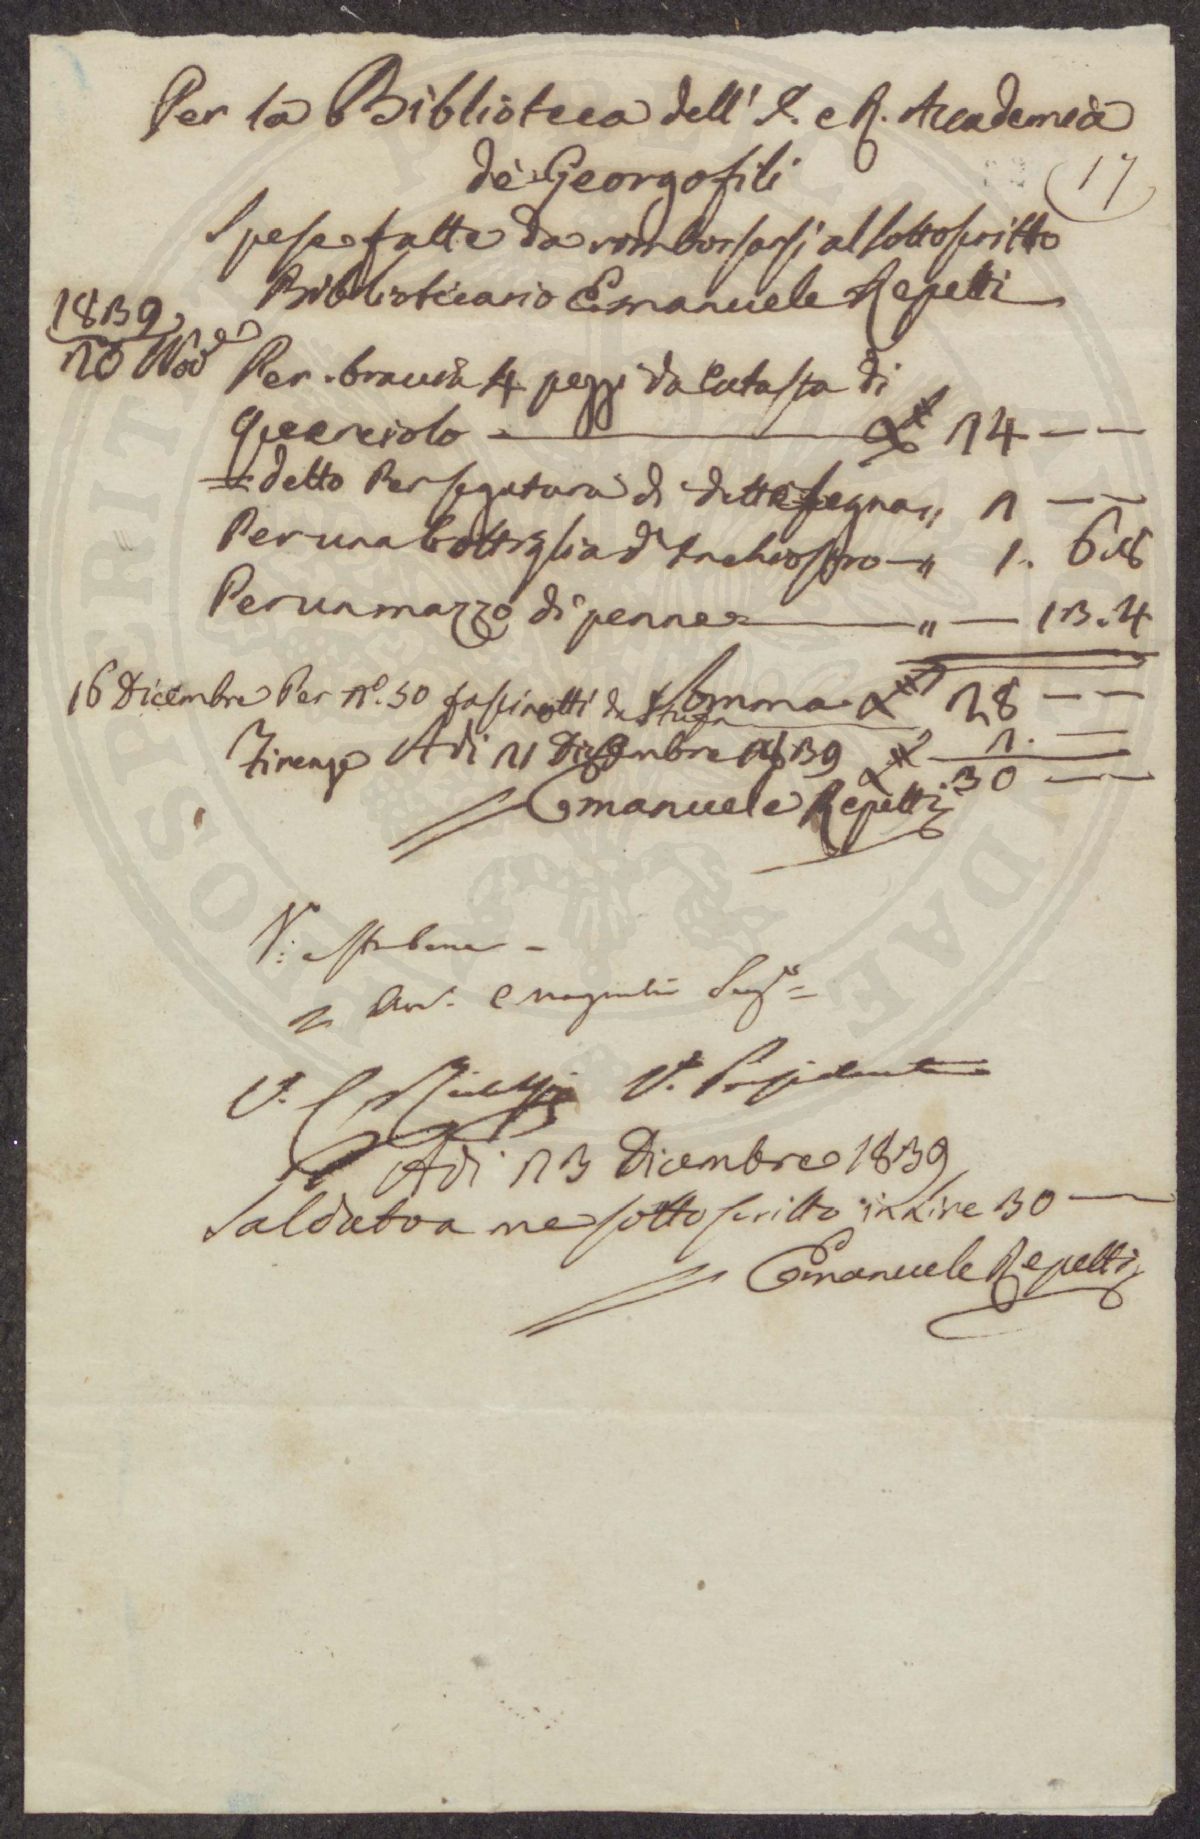 Per la Biblioteca dell' I. e R. Accademia
de' Georgofili
17
Spese fatte da rimborsarsi al sottoscritto
Bibliotecario Emanuele Repetti
1839
20 Nov.e Per braccia 4 pezzi da Catasta di
Querciolo £ 24 — —
= detto Per segatura di dette legna " 2 — —
Per una bottiglia d'Inchiostro — " 1. 6. 8
Per un mazzo di penne — " — 13. 4
Somma £ 28 — —
16 Dicembre Per N.o 50 fascinotti da stufa £ 2. —
Firenze Adi 21 Dicembre 1839 £ 30 — —
Emanuele Repetti
V.o sta bene -
V.e Presidente
Adi 23 Dicembre 1839
Saldato a me sottoscritto in Lire 30 —
Emanuele Repetti